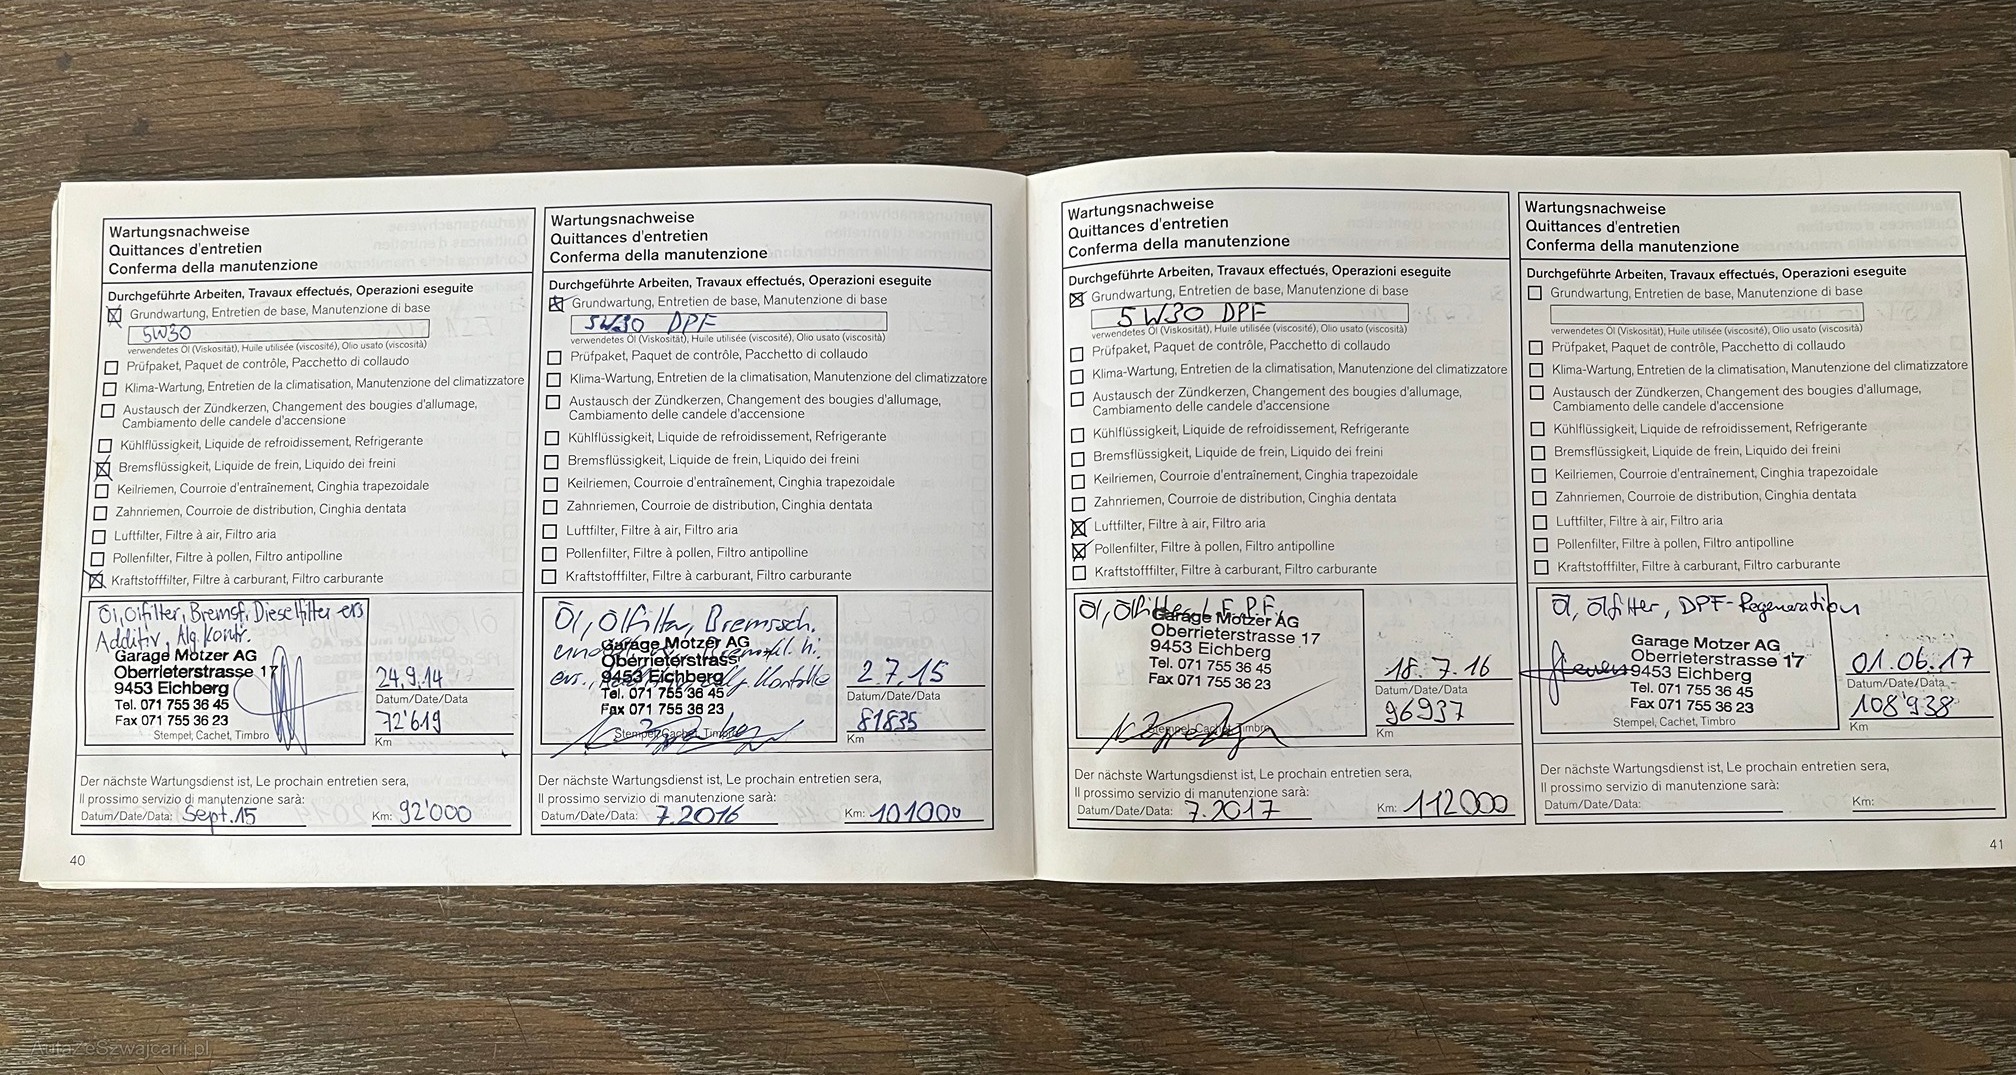 Wartungsnachweise
Quittances d'entretien
Conferma della manutenzione
Durchgeführte Arbeiten, Travaux effectués, Operazioni eseguite
Grundwartung, Entretien de base, Manutenzione di base
5W30
verwendetes Öl (Viskosität), Huile utilisée (viscosité), Olio usato (viscosità)
Prüfpaket, Paquet de contrôle, Pacchetto di collaudo
Klima-Wartung, Entretien de la climatisation, Manutenzione del climatizzatore
Austausch der Zündkerzen, Changement des bougies d'allumage,
Cambiamento delle candele d'accensione
Kühlflüssigkeit, Liquide de refroidissement, Refrigerante
Bremsflüssigkeit, Liquide de frein, Liquido dei freini
Keilriemen, Courroie d'entraînement, Cinghia trapezoidale
Zahnriemen, Courroie de distribution, Cinghia dentata
Luftfilter, Filtre à air, Filtro aria
Pollenfilter, Filtre à pollen, Filtro antipolline
Kraftstofffilter, Filtre à carburant, Filtro carburante
Öl, Ölfilter, Bremsf, Dieselfilter ers
Additiv, Alg. Kontr.
Garage Motzer AG
Oberrieterstrasse 17
9453 Eichberg
Tel. 071 755 36 45
Fax 071 755 36 23
Stempel, Cachet, Timbro
24.9.14
Datum/Date/Data
72'619
Km
Der nächste Wartungsdienst ist, Le prochain entretien sera,
Il prossimo servizio di manutenzione sarà:
Datum/Date/Data: Sept.15 Km: 92'000
40
Wartungsnachweise
Quittances d'entretien
Conferma della manutenzione
Durchgeführte Arbeiten, Travaux effectués, Operazioni eseguite
Grundwartung, Entretien de base, Manutenzione di base
5W30 DPF
verwendetes Öl (Viskosität), Huile utilisée (viscosité), Olio usato (viscosità)
Prüfpaket, Paquet de contrôle, Pacchetto di collaudo
Klima-Wartung, Entretien de la climatisation, Manutenzione del climatizzatore
Austausch der Zündkerzen, Changement des bougies d'allumage,
Cambiamento delle candele d'accensione
Kühlflüssigkeit, Liquide de refroidissement, Refrigerante
Bremsflüssigkeit, Liquide de frein, Liquido dei freini
Keilriemen, Courroie d'entraînement, Cinghia trapezoidale
Zahnriemen, Courroie de distribution, Cinghia dentata
Luftfilter, Filtre à air, Filtro aria
Pollenfilter, Filtre à pollen, Filtro antipolline
Kraftstofffilter, Filtre à carburant, Filtro carburante
Öl, Ölfilter, Bremssch.
Garage Motzer AG
Oberrieterstrass
9453 Eichberg
ers., Kontolle
Tel. 071 755 36 45
Fax 071 755 36 23
Stempel, Cachet, Timbro
2.7.15
Datum/Date/Data
81835
Km
Der nächste Wartungsdienst ist, Le prochain entretien sera,
Il prossimo servizio di manutenzione sarà:
Datum/Date/Data: 7.2016 Km: 101000
Wartungsnachweise
Quittances d'entretien
Conferma della manutenzione
Durchgeführte Arbeiten, Travaux effectués, Operazioni eseguite
Grundwartung, Entretien de base, Manutenzione di base
5W30 DPF
verwendetes Öl (Viskosität), Huile utilisée (viscosité), Olio usato (viscosità)
Prüfpaket, Paquet de contrôle, Pacchetto di collaudo
Klima-Wartung, Entretien de la climatisation, Manutenzione del climatizzatore
Austausch der Zündkerzen, Changement des bougies d'allumage,
Cambiamento delle candele d'accensione
Kühlflüssigkeit, Liquide de refroidissement, Refrigerante
Bremsflüssigkeit, Liquide de frein, Liquido dei freini
Keilriemen, Courroie d'entraînement, Cinghia trapezoidale
Zahnriemen, Courroie de distribution, Cinghia dentata
Luftfilter, Filtre à air, Filtro aria
Pollenfilter, Filtre à pollen, Filtro antipolline
Kraftstofffilter, Filtre à carburant, Filtro carburante
Öl, Ölfilter, L.F. P.F.
Garage Motzer AG
Oberrieterstrasse 17
9453 Eichberg
Tel. 071 755 36 45
Fax 071 755 36 23
Stempel, Cachet, Timbro
18.7.16
Datum/Date/Data
96937
Km
Der nächste Wartungsdienst ist, Le prochain entretien sera,
Il prossimo servizio di manutenzione sarà:
Datum/Date/Data: 7.2017 Km: 112000
Wartungsnachweise
Quittances d'entretien
Conferma della manutenzione
Durchgeführte Arbeiten, Travaux effectués, Operazioni eseguite
Grundwartung, Entretien de base, Manutenzione di base
verwendetes Öl (Viskosität), Huile utilisée (viscosité), Olio usato (viscosità)
Prüfpaket, Paquet de contrôle, Pacchetto di collaudo
Klima-Wartung, Entretien de la climatisation, Manutenzione del climatizzatore
Austausch der Zündkerzen, Changement des bougies d'allumage,
Cambiamento delle candele d'accensione
Kühlflüssigkeit, Liquide de refroidissement, Refrigerante
Bremsflüssigkeit, Liquide de frein, Liquido dei freini
Keilriemen, Courroie d'entraînement, Cinghia trapezoidale
Zahnriemen, Courroie de distribution, Cinghia dentata
Luftfilter, Filtre à air, Filtro aria
Pollenfilter, Filtre à pollen, Filtro antipolline
Kraftstofffilter, Filtre à carburant, Filtro carburante
Öl, Ölfilter, DPF-Regeneration
Garage Motzer AG
Oberrieterstrasse 17
9453 Eichberg
Tel. 071 755 36 45
Fax 071 755 36 23
Stempel, Cachet, Timbro
01.06.17
Datum/Date/Data
108'938
Km
Der nächste Wartungsdienst ist, Le prochain entretien sera,
Il prossimo servizio di manutenzione sarà:
Datum/Date/Data: Km:
41
AutaZeSzwajcarii.pl